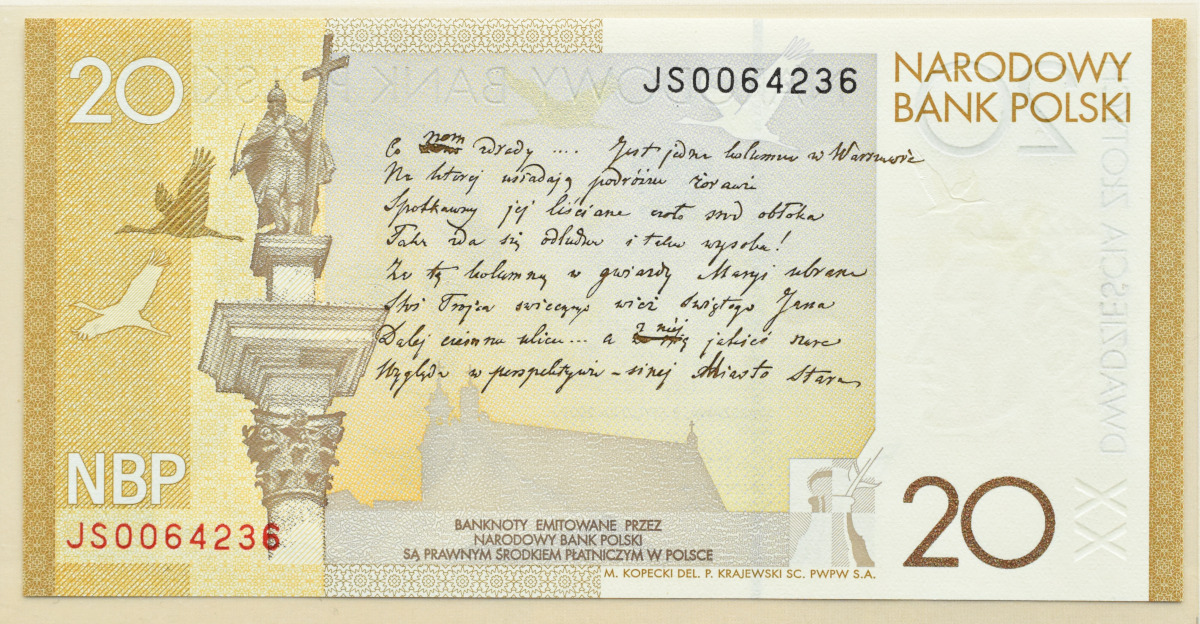 20
JS0064236
NARODOWY
BANK POLSKI
Co nam zdrady .... Jest jedna kolumna w Warszawie
Na ktorej usiadają podróżne żorawie
Spotkawszy jej liściane czoło snod obłoka
Taka zda się odludna i taka wysoka!
Za tą kolumną w gwiazdy Maryi ubrana
Stoi Trójca swiecznego wież Świętego Jana
Dalej ciemna ulica... a z niej jakieś szare
Wygląda w perspektywie – sinej Miasto stare
DWADZIEŚCIA ZŁOTYCH
XX
NBP
JS0064236
BANKNOTY EMITOWANE PRZEZ
NARODOWY BANK POLSKI
SĄ PRAWNYM ŚRODKIEM PŁATNICZYM W POLSCE
M. KOPECKI DEL. P. KRAJEWSKI SC. PWPW S.A.
20